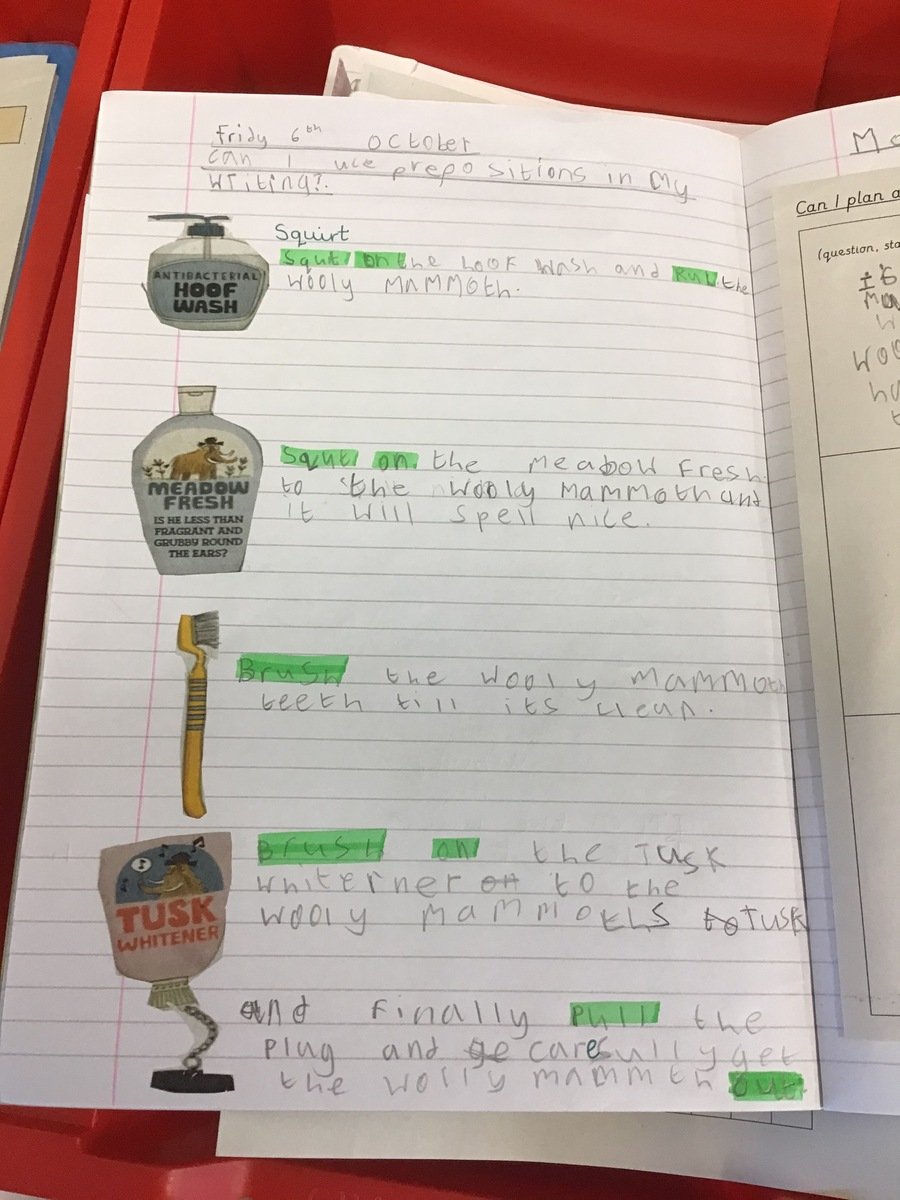 fridy 6th october
can I use prepositions in my
writing?.
Squirt
Squt on the hoof wash and Rub the
wooly mammoth.
ANTIBACTERIAL
HOOF
WASH
Squt on. the meadow Fresh
to the wooly mammoth and
it will spell nice.
MEADOW
FRESH
IS HE LESS THAN
FRAGRANT AND
GRUBBY ROUND
THE EARS?
Brush the wooly mammoth
teeth till its clean.
Brush on the Tusk
whiterner on to the
wooly mammoths to Tusk
TUSK
WHITENER
and finally pull the
plug and ge carefully get
the wolly mammth out
Can I plan a
(question, sta